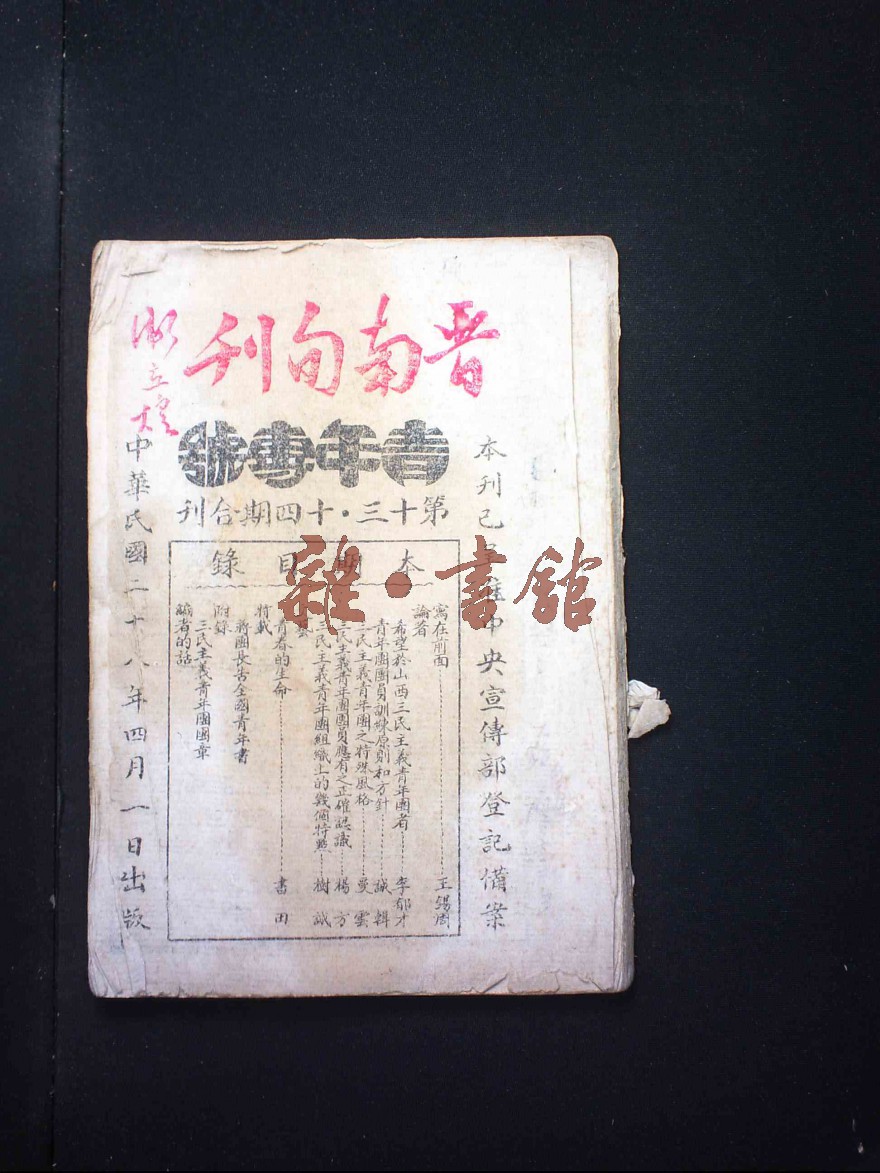 晋南旬刊
衛立煌
青年專號
第十三·十四期合刊
本刊已呈准中央宣傳部登記備案
本期目錄
寫在前面……王錫周
論著
希望於山西三民主義青年團者……李郁才
青年團團員訓練原則和方針……誠輯
三民主義青年團之特殊風格……曼雲
三民主義青年團團員應有之正確認識……楊方
三民主義青年團組織上的幾個特點……樹誠
青春的生命……書田
特載
蔣團長告全國青年書
附錄
三民主義青年團團章
編者的話
中華民國二十八年四月一日出版
雜·書館